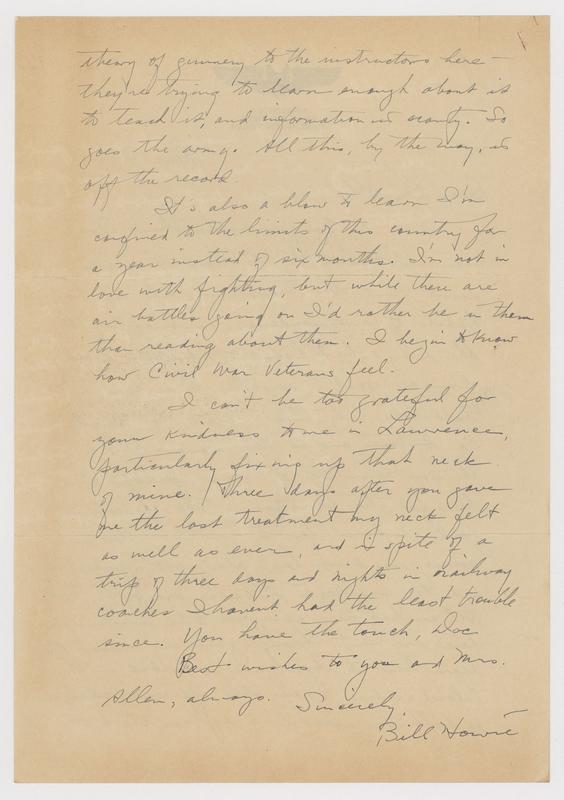 theory of gunnery to the instructors here -
they're trying to learn enough about it
to teach it, and information is scanty. So
goes the army. All this, by the way, is
off the record.
It's also a blow to learn I'm
confined to the limits of this country for
a year instead of six months. I'm not in
love with fighting, but while there are
air battles going on I'd rather be in them
than reading about them. I begin to know
how Civil War Veterans feel.
I can't be too grateful for
your kindness to me in Lawrence,
particularly fixing up that neck
of mine. Three days after you gave
me the last treatment my neck felt
as well as ever, and in spite of a
trip of three days and nights in railway
coaches I haven't had the least trouble
since. You have the touch, Doc
Best wishes to you and Mrs.
Allen, always.
Sincerely,
Bill Howie